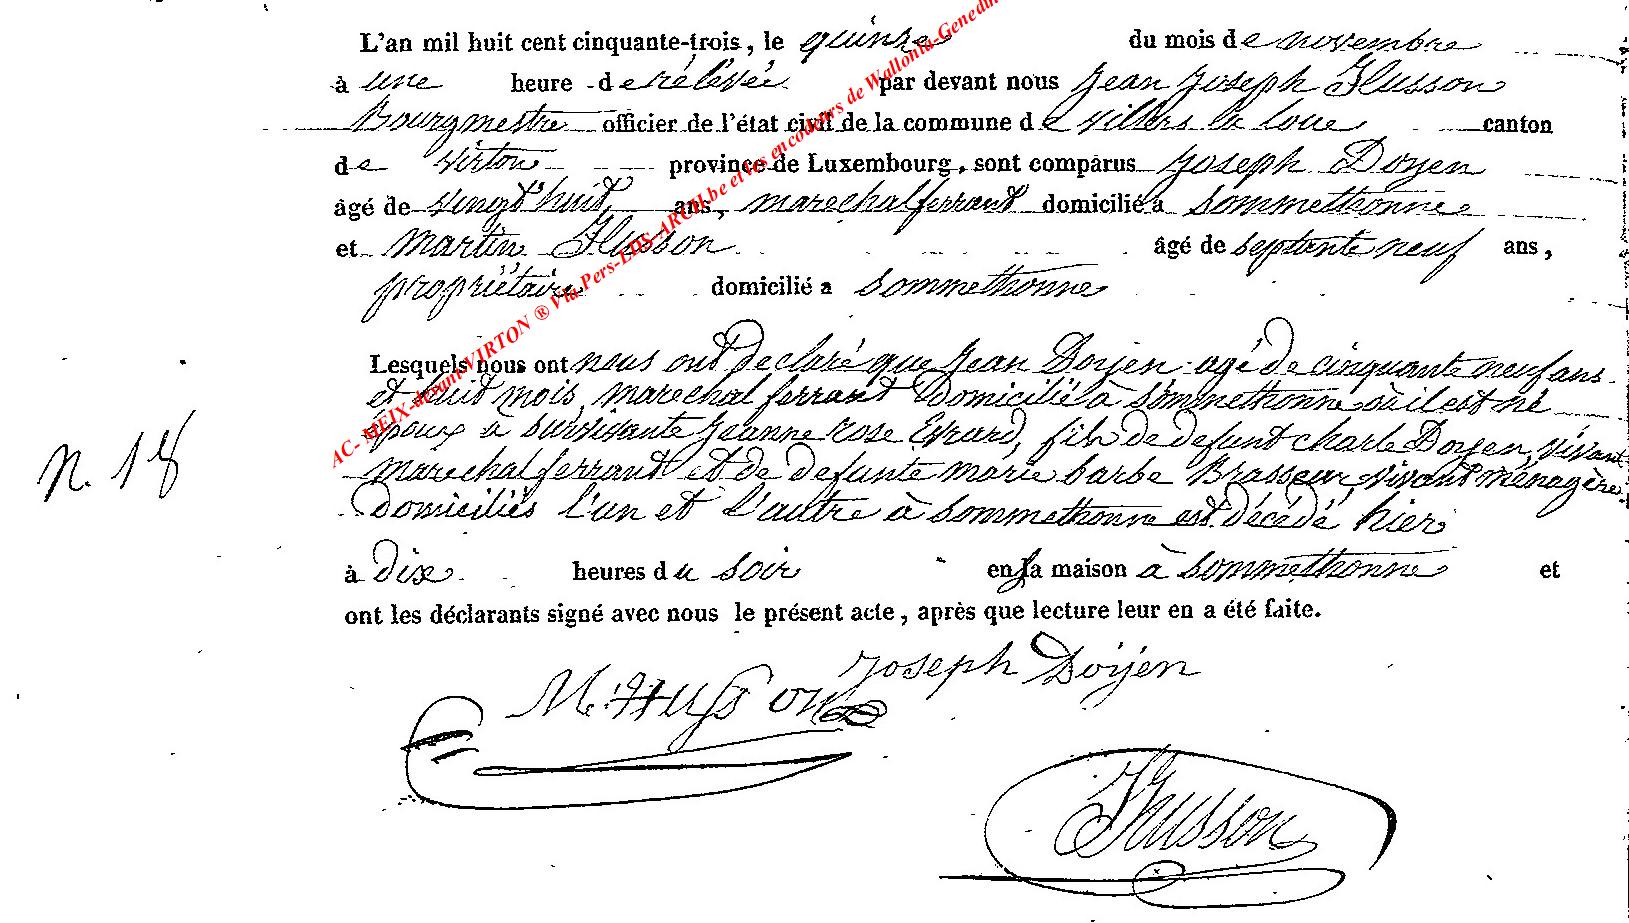 L'an mil huit cent cinquante-trois, le quinze du mois de novembre
à une heure de rélévée par devant nous Jean Joseph Husson
Bourgmestre officier de l'état civil de la commune de Villers la loue canton
de Virton province de Luxembourg, sont comparus Joseph Doyen
âgé de vingt huit ans, marechal ferrant domicilié à Sommethonne
et Martin Husson âgé de septante neuf ans,
propriétaire domicilié a Sommethonne
Lesquels nous ont nous ont declaré que Jean Doyen agé de cinquante neuf ans
et huit mois, marechal ferrant domicilié à Sommethonne où il est né
Epoux à survivante Jeanne rose Evrard, fils de defunt charle Doyen, vivant
maréchal ferrant et de defunte marie barbe Brasseur, vivant ménagère
domiciliés l'un et l'autre à Sommethonne est décédé hier
à dix heures du soir en sa maison à Sommethonne et
ont les déclarants signé avec nous le présent acte, après que lecture leur en a été faite.
N. 18
Joseph Doyen
M. Husson
JHusson
AC- MEIX-devant-VIRTON ® Via Pers-LDS-ARCH.be et les encodeurs de Wallonia-Genedin